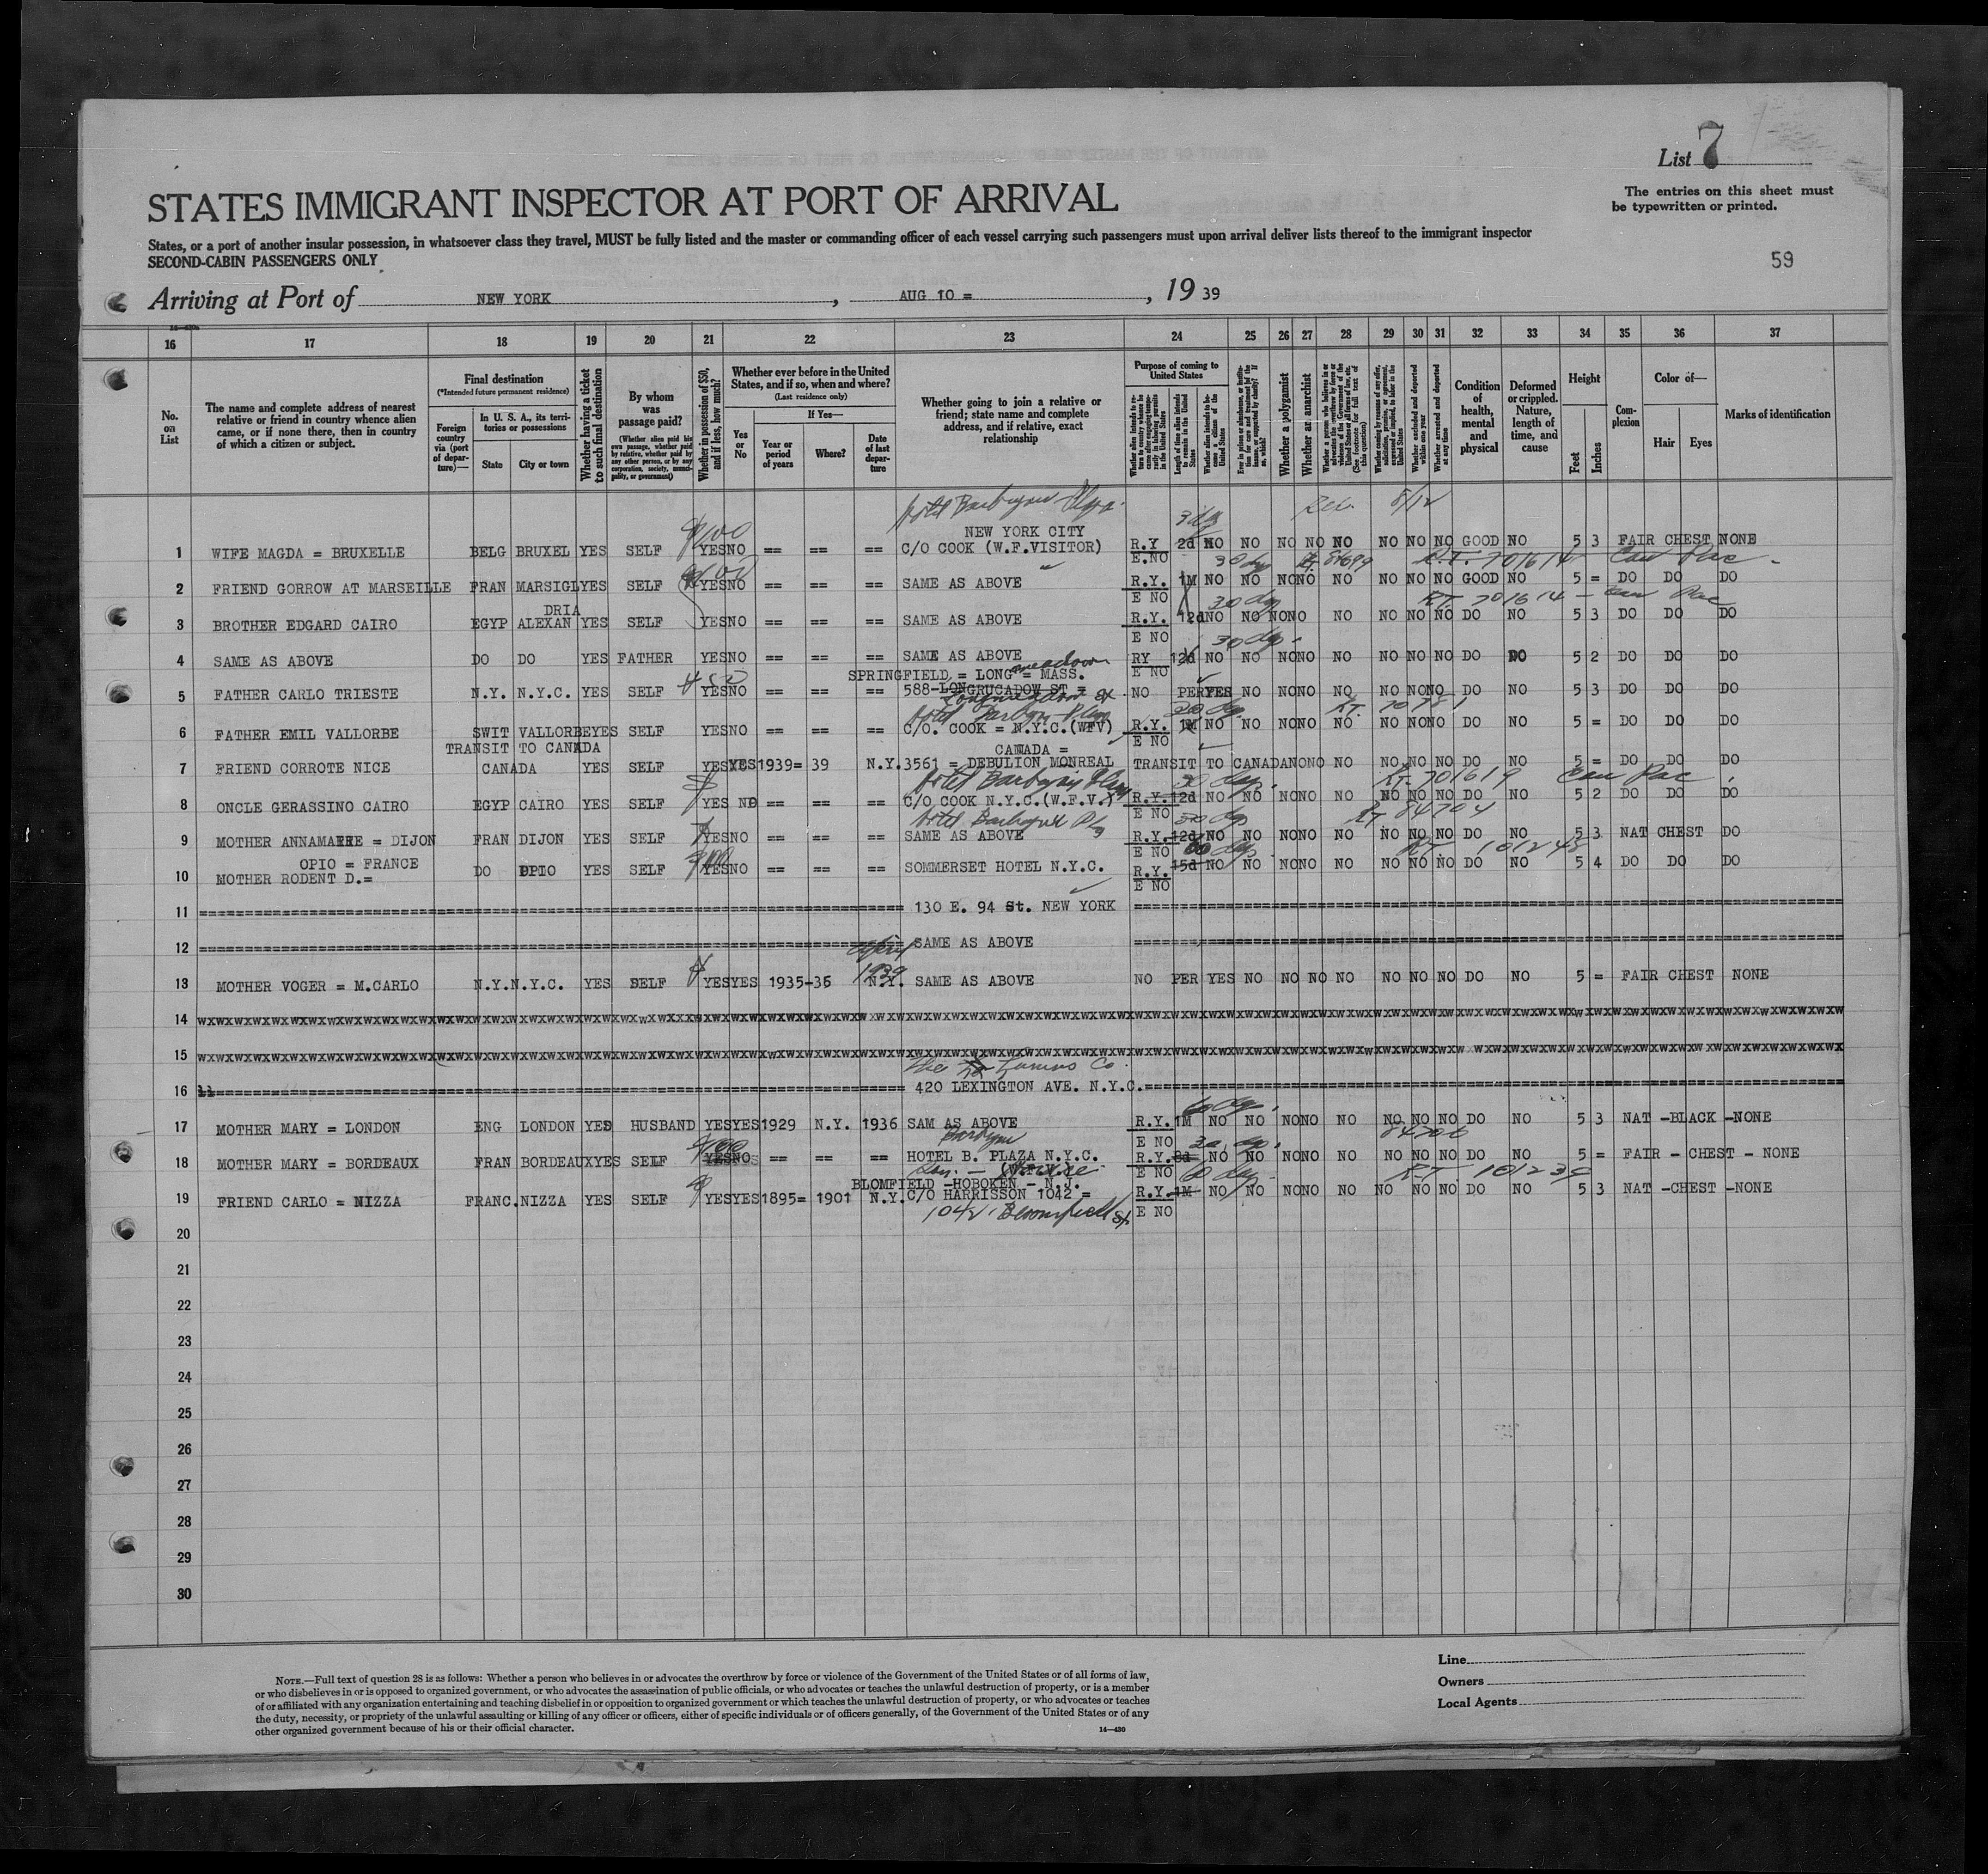 List 7
STATES IMMIGRANT INSPECTOR AT PORT OF ARRIVAL
The entries on this sheet must
be typewritten or printed.
States, or a port of another insular possession, in whatsoever class they travel, MUST be fully listed and the master or commanding officer of each vessel carrying such passengers must upon arrival deliver lists thereof to the immigrant inspector
SECOND-CABIN PASSENGERS ONLY
59
Arriving at Port of NEW YORK , AUG 10 = , 19 39
16 17 18 19 20 21 22 23 24 25 26 27 28 29 30 31 32 33 34 35 36 37
No. on List
The name and complete address of nearest relative or friend in country whence alien came, or if none there, then in country of which a citizen or subject.
Final destination
(*Intended future permanent residence)
Foreign country via (port of departure)—
In U. S. A., its territories or possessions
State
City or town
Whether having a ticket to such final destination
By whom was passage paid?
(Whether alien paid his own passage, whether paid by relative, whether paid by any other person, or by any corporation, society, municipality, or government)
Whether in possession of $50, and if less, how much?
Whether ever before in the United States, and if so, when and where?
(Last residence only)
Yes or No
If Yes—
Year or period of years
Where?
Date of last departure
Whether going to join a relative or friend; state name and complete address, and if relative, exact relationship
Purpose of coming to United States
Length of time alien intends to remain in the United States
Whether alien intends to become a citizen of the United States
Whether a polygamist
Whether an anarchist
Whether excluded and deported within one year
Whether arrested and deported at any time
Condition of health, mental and physical
Deformed or crippled. Nature, length of time, and cause
Height
Feet
Inches
Complexion
Color of—
Hair
Eyes
Marks of identification
8/12
NEW YORK CITY
1 WIFE MAGDA = BRUXELLE BELG BRUXEL YES SELF YES NO == == == C/O COOK (W.F.VISITOR) R.Y 2d NO NO NO NO NO NO NO NO GOOD NO 5 3 FAIR CHEST NONE
E.NO 30 dys R.T. 701614 Can Pac
2 FRIEND GORROW AT MARSEILLE FRAN MARSIGL YES SELF YES NO == == == SAME AS ABOVE R.Y. 1M NO NO NO NO NO NO NO NO GOOD NO 5 = DO DO DO
E NO 30 dys RT 701614 - Can Pac
DRIA
3 BROTHER EDGARD CAIRO EGYP ALEXAN YES SELF YES NO == == == SAME AS ABOVE R.Y. 12d NO NO NO NO NO NO NO NO DO NO 5 3 DO DO DO
E NO 30 dys.
4 SAME AS ABOVE DO DO YES FATHER YES NO == == == SAME AS ABOVE RY 12d NO NO NO NO NO NO NO NO DO DO 5 2 DO DO DO
E NO
SPRINGFIELD = LONG meadow = MASS.
5 FATHER CARLO TRIESTE N.Y. N.Y.C. YES SELF YES NO == == == 588-LONGRUCADOW ST = NO PER YES NO NO NO NO NO NO NO DO NO 5 3 DO DO DO
Longmeadow st
6 FATHER EMIL VALLORBE SWIT VALLORBE YES SELF YES NO == == == C/O. COOK = N.Y.C.(WFV) R.Y. 1M NO NO NO NO NO NO NO NO DO NO 5 = DO DO DO
E NO
TRANSIT TO CANADA
CANADA =
7 FRIEND CORROTE NICE CANADA YES SELF YES YES 1939= 39 N.Y. 3561 = DEBULION MONREAL TRANSIT TO CANADA NO NO NO NO NO NO DO NO 5 = DO DO DO
Hotel Barbizon Plaza 30 dys. RT 701619 Can Pac
8 ONCLE GERASSINO CAIRO EGYP CAIRO YES SELF YES NO == == == C/O COOK N.Y.C.(W.F.V.) R.Y. 12d NO NO NO NO NO NO NO NO DO NO 5 2 DO DO DO
E NO RT 84704
9 MOTHER ANNAMAERE = DIJON FRAN DIJON YES SELF YES NO == == == SAME AS ABOVE R.Y. 12d NO NO NO NO NO NO NO NO DO NO 5 3 NAT CHEST DO
E NO 60 dys
OPIO = FRANCE
10 MOTHER RODENT D.= DO OPIO YES SELF YES NO == == == SOMMERSET HOTEL N.Y.C. R.Y. 15d NO NO NO NO NO NO NO NO DO NO 5 4 DO DO DO
E NO
11 130 E. 94 St. NEW YORK
12 SAME AS ABOVE
April 1939
13 MOTHER VOGER = M.CARLO N.Y. N.Y.C. YES SELF YES YES 1935-36 N.Y. SAME AS ABOVE NO PER YES NO NO NO NO NO NO NO DO NO 5 = FAIR CHEST NONE
14
15
16 420 LEXINGTON AVE. N.Y.C.
60 dys.
17 MOTHER MARY = LONDON ENG LONDON YES HUSBAND YES YES 1929 N.Y. 1936 SAM AS ABOVE R.Y. 1M NO NO NO NO NO NO NO NO DO NO 5 3 NAT -BLACK -NONE
E NO 30 dys. 84706
18 MOTHER MARY = BORDEAUX FRAN BORDEAUX YES SELF YES NO == == == HOTEL B. PLAZA N.Y.C. R.Y. 8d NO NO NO NO NO NO NO NO DO NO 5 = FAIR - CHEST - NONE
E NO
BLOMFIELD -HOBOKEN - N.J.
19 FRIEND CARLO = NIZZA FRANC. NIZZA YES SELF YES YES 1895= 1901 N.Y. C/O HARRISSON 1042 = R.Y. 1M NO NO NO NO NO NO NO NO DO NO 5 3 NAT -CHEST -NONE
1042 Bloomfield St E NO
20
21
22
23
24
25
26
27
28
29
30
NOTE.—Full text of question 28 is as follows: Whether a person who believes in or advocates the overthrow by force or violence of the Government of the United States or of all forms of law,
or who disbelieves in or is opposed to organized government, or who advocates the assassination of public officials, or who advocates or teaches the unlawful destruction of property, or is a member
of or affiliated with any organization entertaining and teaching disbelief in or opposition to organized government or which teaches the unlawful destruction of property, or who advocates or teaches
the duty, necessity, or propriety of the unlawful assaulting or killing of any officer or officers, either of specific individuals or of officers generally, of the Government of the United States or of any
other organized government because of his or their official character.
14—430
Line
Owners
Local Agents